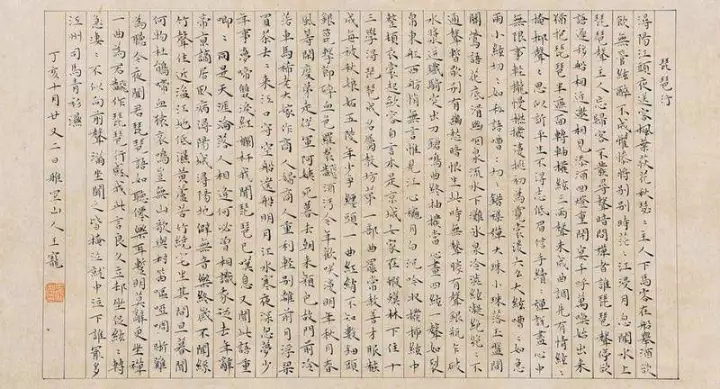 琵琶行
潯陽江頭夜送客楓葉荻花秋瑟〻主人下馬客在船舉酒欲
飲無管絃醉不成懽慘將別別時茫〻江浸月忽聞水上
琵琶聲主人忘歸客不發尋聲暗問彈者誰琵琶聲停欲
語遲移船相近邀相見添酒回燈重開宴千呼萬喚始出來
猶抱琵琶半遮面轉軸撥絃三兩聲未成曲調先有情絃〻
掩抑聲〻思似訴平生不得志低眉信手續〻彈說盡心中
無限事輕攏慢撚撥復挑初為霓裳後六幺大絃嘈〻如急
雨小絃切〻如私語嘈〻切〻錯雜彈大珠小珠落玉盤間
關鶯語花底滑幽咽泉流水下灘水泉冷澀絃凝絕〻不
通聲暫歇別有幽愁暗恨生此時無聲勝有聲銀瓶乍破
水漿迸鐵騎突出刀鎗鳴曲終抽撥當心畫四絃一聲如裂
帛東船西舫悄無言唯見江心秋月白沉吟收撥插絃中
整頓衣裳起斂容自言本是京城女家在蝦蟆陵下住十
三學得琵琶成名屬教坊第一部曲罷常教善才服粧
成每被秋娘妒五陵年少爭纏頭一曲紅綃不知數鈿頭
銀篦擊節碎血色羅裙翻酒污今年歡笑復明年秋月春
風等閒度弟走從軍阿姨死暮去朝來顏色故門前冷
落車馬稀老大嫁作商人婦商人重利輕別離前月浮梁
買茶去〻來江口守空船遶船明月江水寒夜深忽夢少
年事夢啼粧淚紅闌干我聞琵琶已嘆息又聞此語重
唧〻同是天涯淪落人相逢何必曾相識我從去年辭
帝京謫居臥病潯陽城潯陽地僻無音樂終歲不聞絲
竹聲住近湓江地低濕黃蘆苦竹繞宅生其間旦暮聞
何物杜鵑啼血猿哀鳴豈無山歌與村笛嘔啞嘲哳難
為聽今夜聞君琵琶語如聽僊樂耳暫明莫辭更坐彈
一曲為君翻作琵琶行感我此言良久立却坐促絃〻轉
急淒〻不似向前聲滿座聞之皆掩泣就中泣下誰最多
江州司馬青衫濕
丁亥十月廿又二日雅宜山人王寵